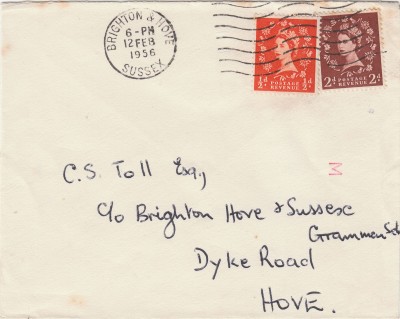 BRIGHTON & HOVE
6-PM
12 FEB
1956
SUSSEX
½d POSTAGE REVENUE ½d
2d POSTAGE REVENUE 2d
C.S. Toll Esq.,
c/o Brighton Hove & Sussex
Grammar Sch
Dyke Road
HOVE.